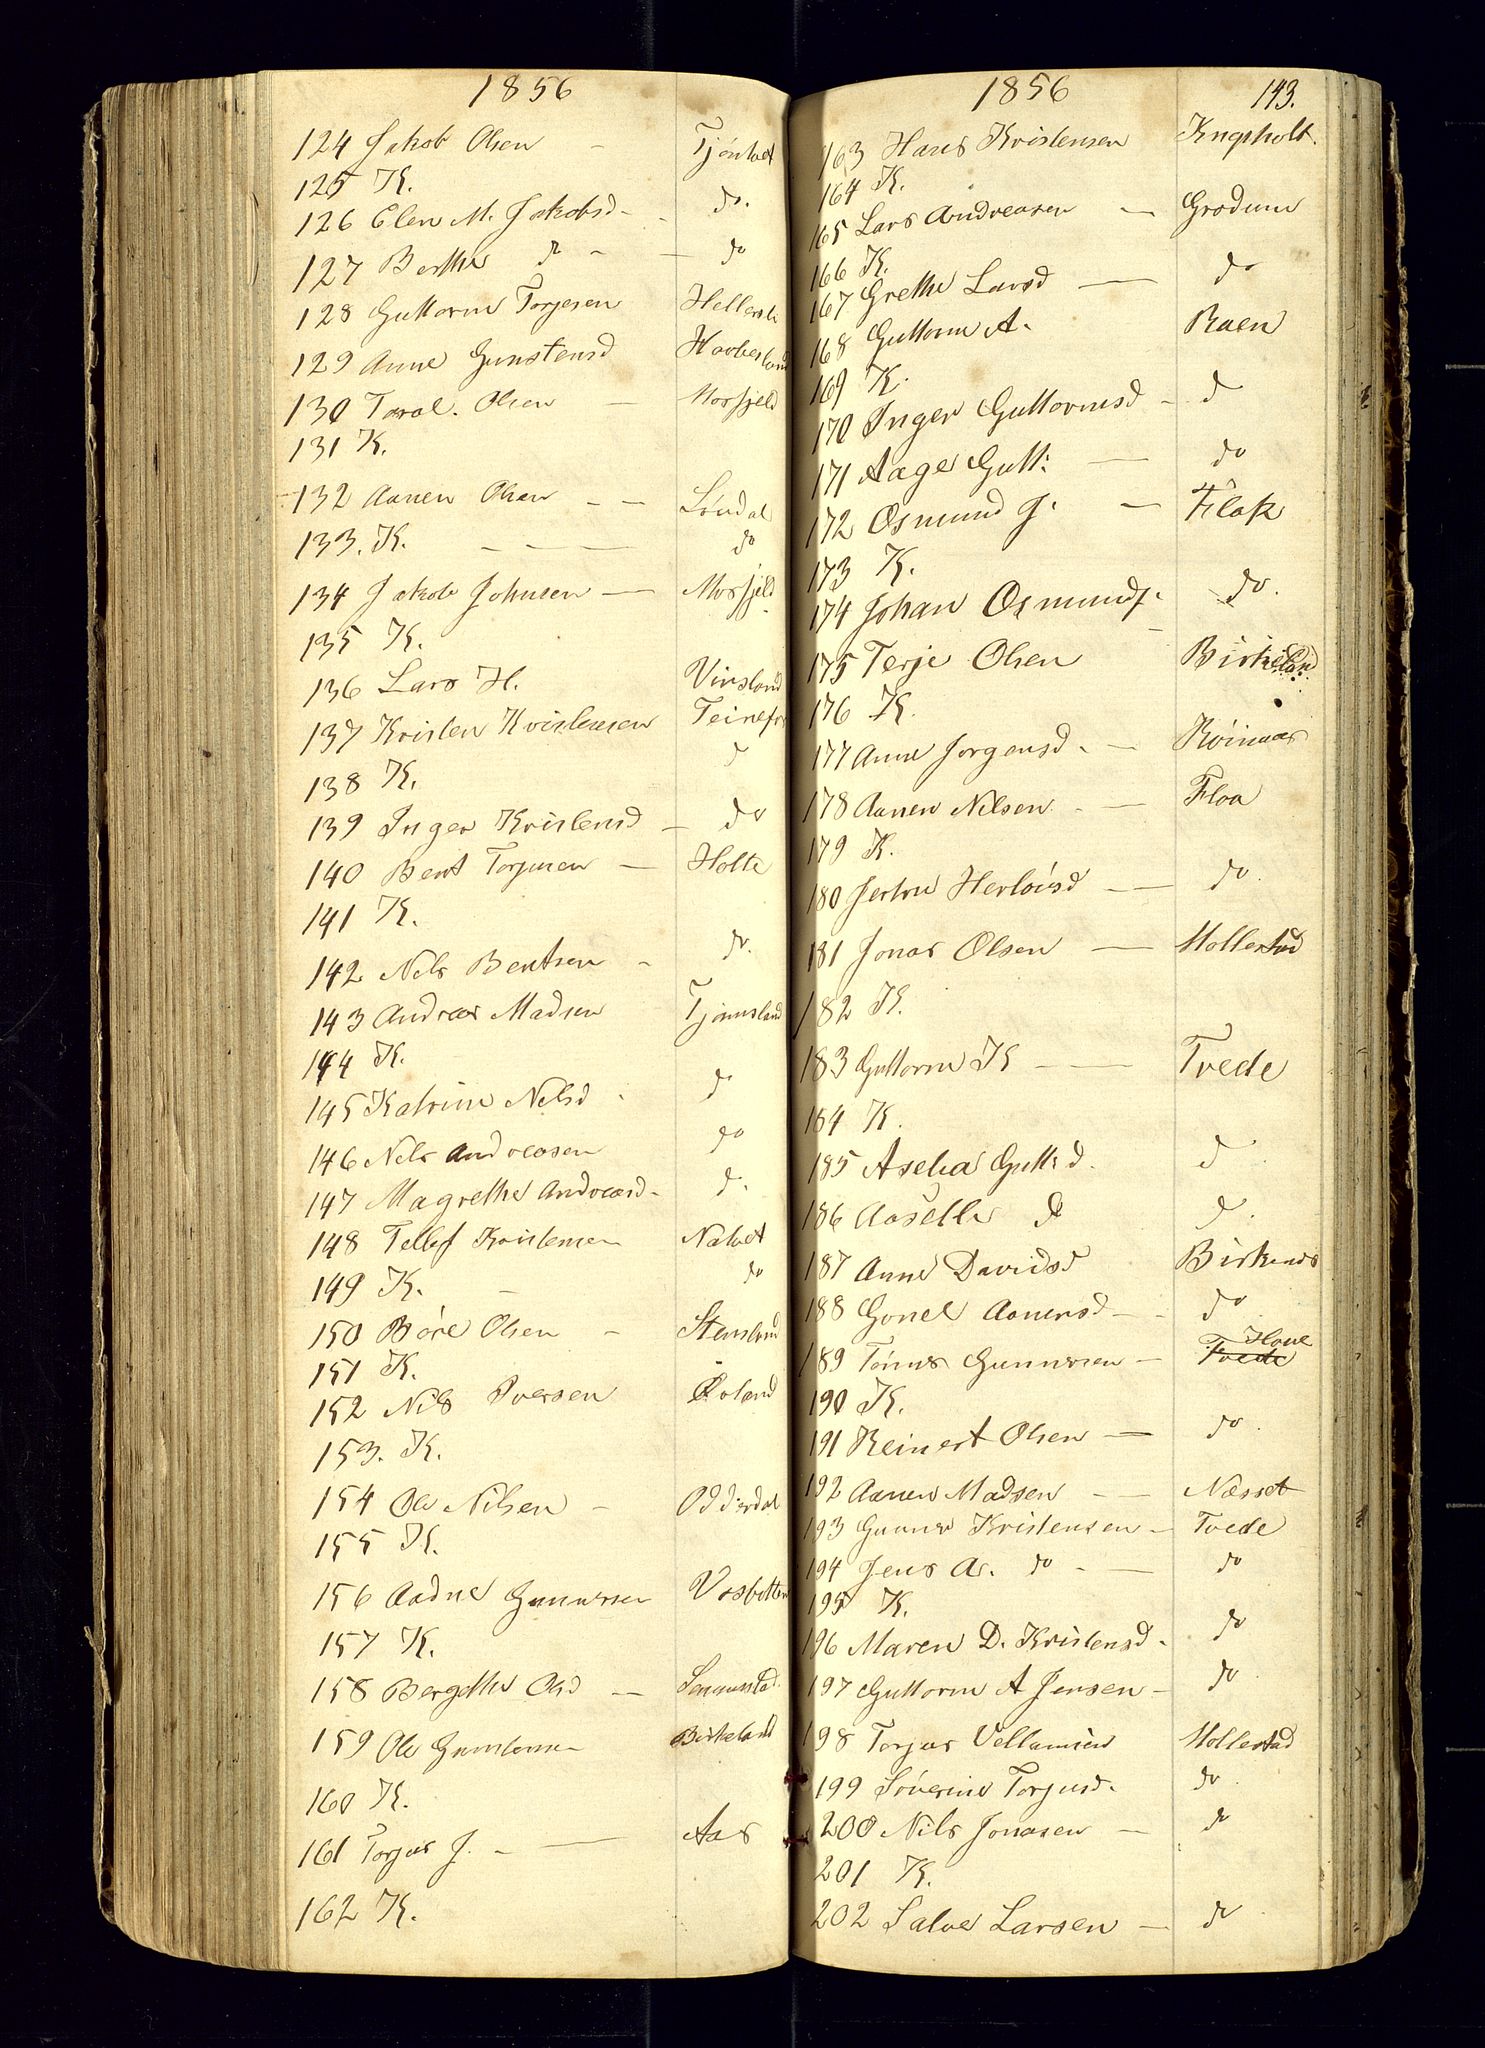 1856
124 Jakob Olsen - Tjöntvet
125 K.
126 Elen M. Jakobsd - do.
127 Berthe do - - do
128 Guttorm Torjesen
129 Anne Gunstensd Haabesland
130 Taral. Olsen - Mosfjeld
131 K.
132 Aanen Olsen - - Löndal
133. K. - - - do
134 Jakob Johnsen - Mosfjeld
135 K.
136 Lars H. Vinsland
137 Kristen Kristensen
138 K. d
139 Inger Kristensd - do
140 Bent Torjusen - Holte
141 K.
142 Nels Bentsen - do.
143 Andreas Madsen Tjomsland
144 K.
145 Katrine Nelsd - do
146 Nels Andreasen do
147 Magrethe Andreasd - d.
148 Tellef Kristensen Natvet
149 K. - do
150 Böre Olsen - Stensland
151 K.
152 Nils Iversen
153. K.
154 Ole Nilsen - Oddersdal
155 K.
156 Aadne Gunnersen Vasbotten
157 K.
158 Bergethe Olsd -
159 Ole Gunstensen Birkeland
160 K.
161 Torjus J. - - Aas
162 K.
1856 143.
163 Hans Kristensen Knapholt.
164 K.
165 Lars Andreasen - Grödum
166 K.
167 Grethe Larsd - do
168 Guttorm A. Raen
169 K.
170 Inger Guttormsd - d
171 Aage Gutt: - do
172 Osmund J. - Flak
173 K.
174 Johan Osmunds. - do.
175 Terje Olsen Birkeland
176 K.
177 Anne Jorgensd. - Röinaas
178 Aanen Nilsen - - Flaa
179 K.
180 - - do.
181 Jonas Olsen - Mollestad
182 K.
183 Guttorm K - - Tvede
184 K.
185 Aselia Gutt:d. d
186 Aaselle do d.
187 Anne Davidsd Birkenes
188 Gonel Aanensd - - do
189 Tönnes Gunnersen - Tvede Hove
190 K.
191 Reinert Olsen - do.
192 Aanen Madsen - - Næsset
193 Gunner Kristensen - Tvede
194 Jens A. do - - do
195 K.
196 Maren D. Kristensd. do
197 Guttorm A Jensen - do
198 Torjus Vellumsen Mollestad
199 Söverine Torjusd. do
200 Nils Jonasen - do
201 K.
202 Salve Larsen - do